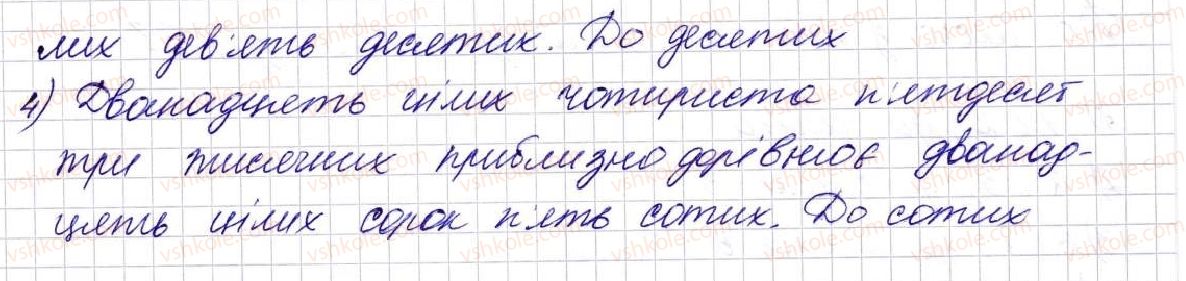 лих дев'ять десятих. До десятих
4) Дванадцять цілих чотириста п'ятдесят
три тисячних приблизно дорівнює дванад-
цять цілих сорок п'ять сотих. До сотих